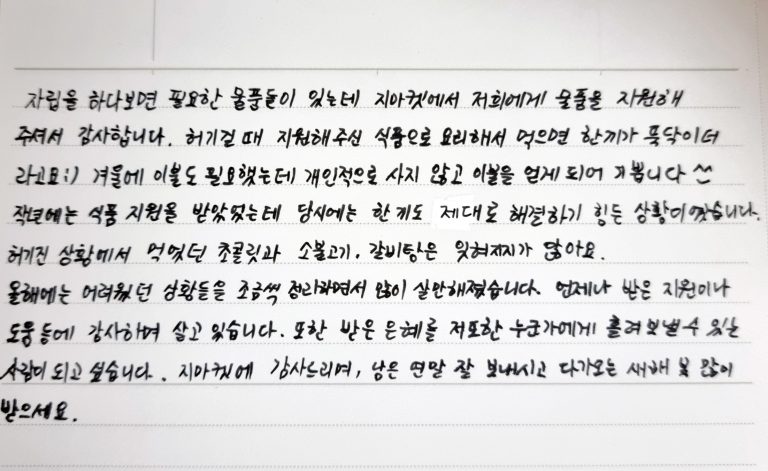 자립을 하다보면 필요한 물품들이 있는데 지마켓에서 저희에게 물품을 지원해
주셔서 감사합니다. 허기질 때 지원해주신 식품으로 요리해서 먹으면 한끼가 뚝딱이더
라고요:) 겨울에 이불도 필요했는데 개인적으로 사지 않고 이불을 얻게 되어 기쁩니다 ^^
작년에는 식품 지원을 받았었는데 당시에는 한끼도 제대로 해결하기 힘든 상황이었습니다.
허기진 상황에서 먹었던 초콜릿과 소불고기, 갈비탕은 잊혀지지가 않아요.
올해에는 어려웠던 상황들을 조금씩 정리하면서 많이 실안해졌습니다. 언제나 받은 지원이나
도움 등에 감사하며 살고 있습니다. 또한 받은 은혜를 저또한 누군가에게 흘려 보낼 수 있는
사람이 되고 싶습니다. 지마켓에 감사드리며, 남은 연말 잘 보내시고 다가오는 새해 복 많이
받으세요.